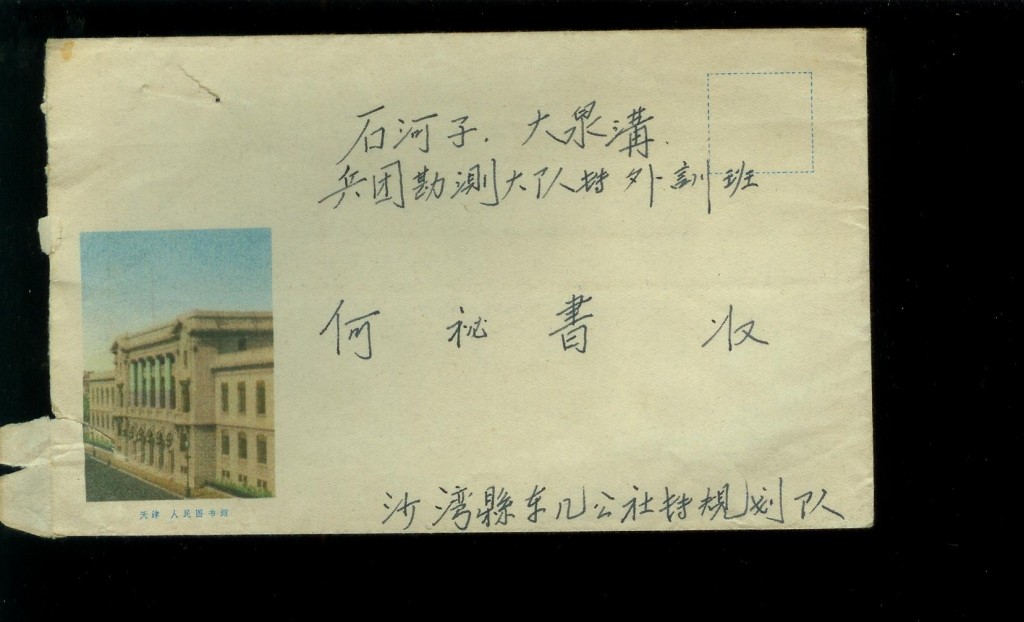 石河子.大泉溝.
兵团勘測大队特外訓班
何秘書 收
天津 人民图书馆
沙湾縣东几公社特規划队